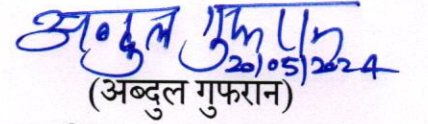 अब्दुल गुफरान
20/05/2024
(अब्दुल गुफरान)